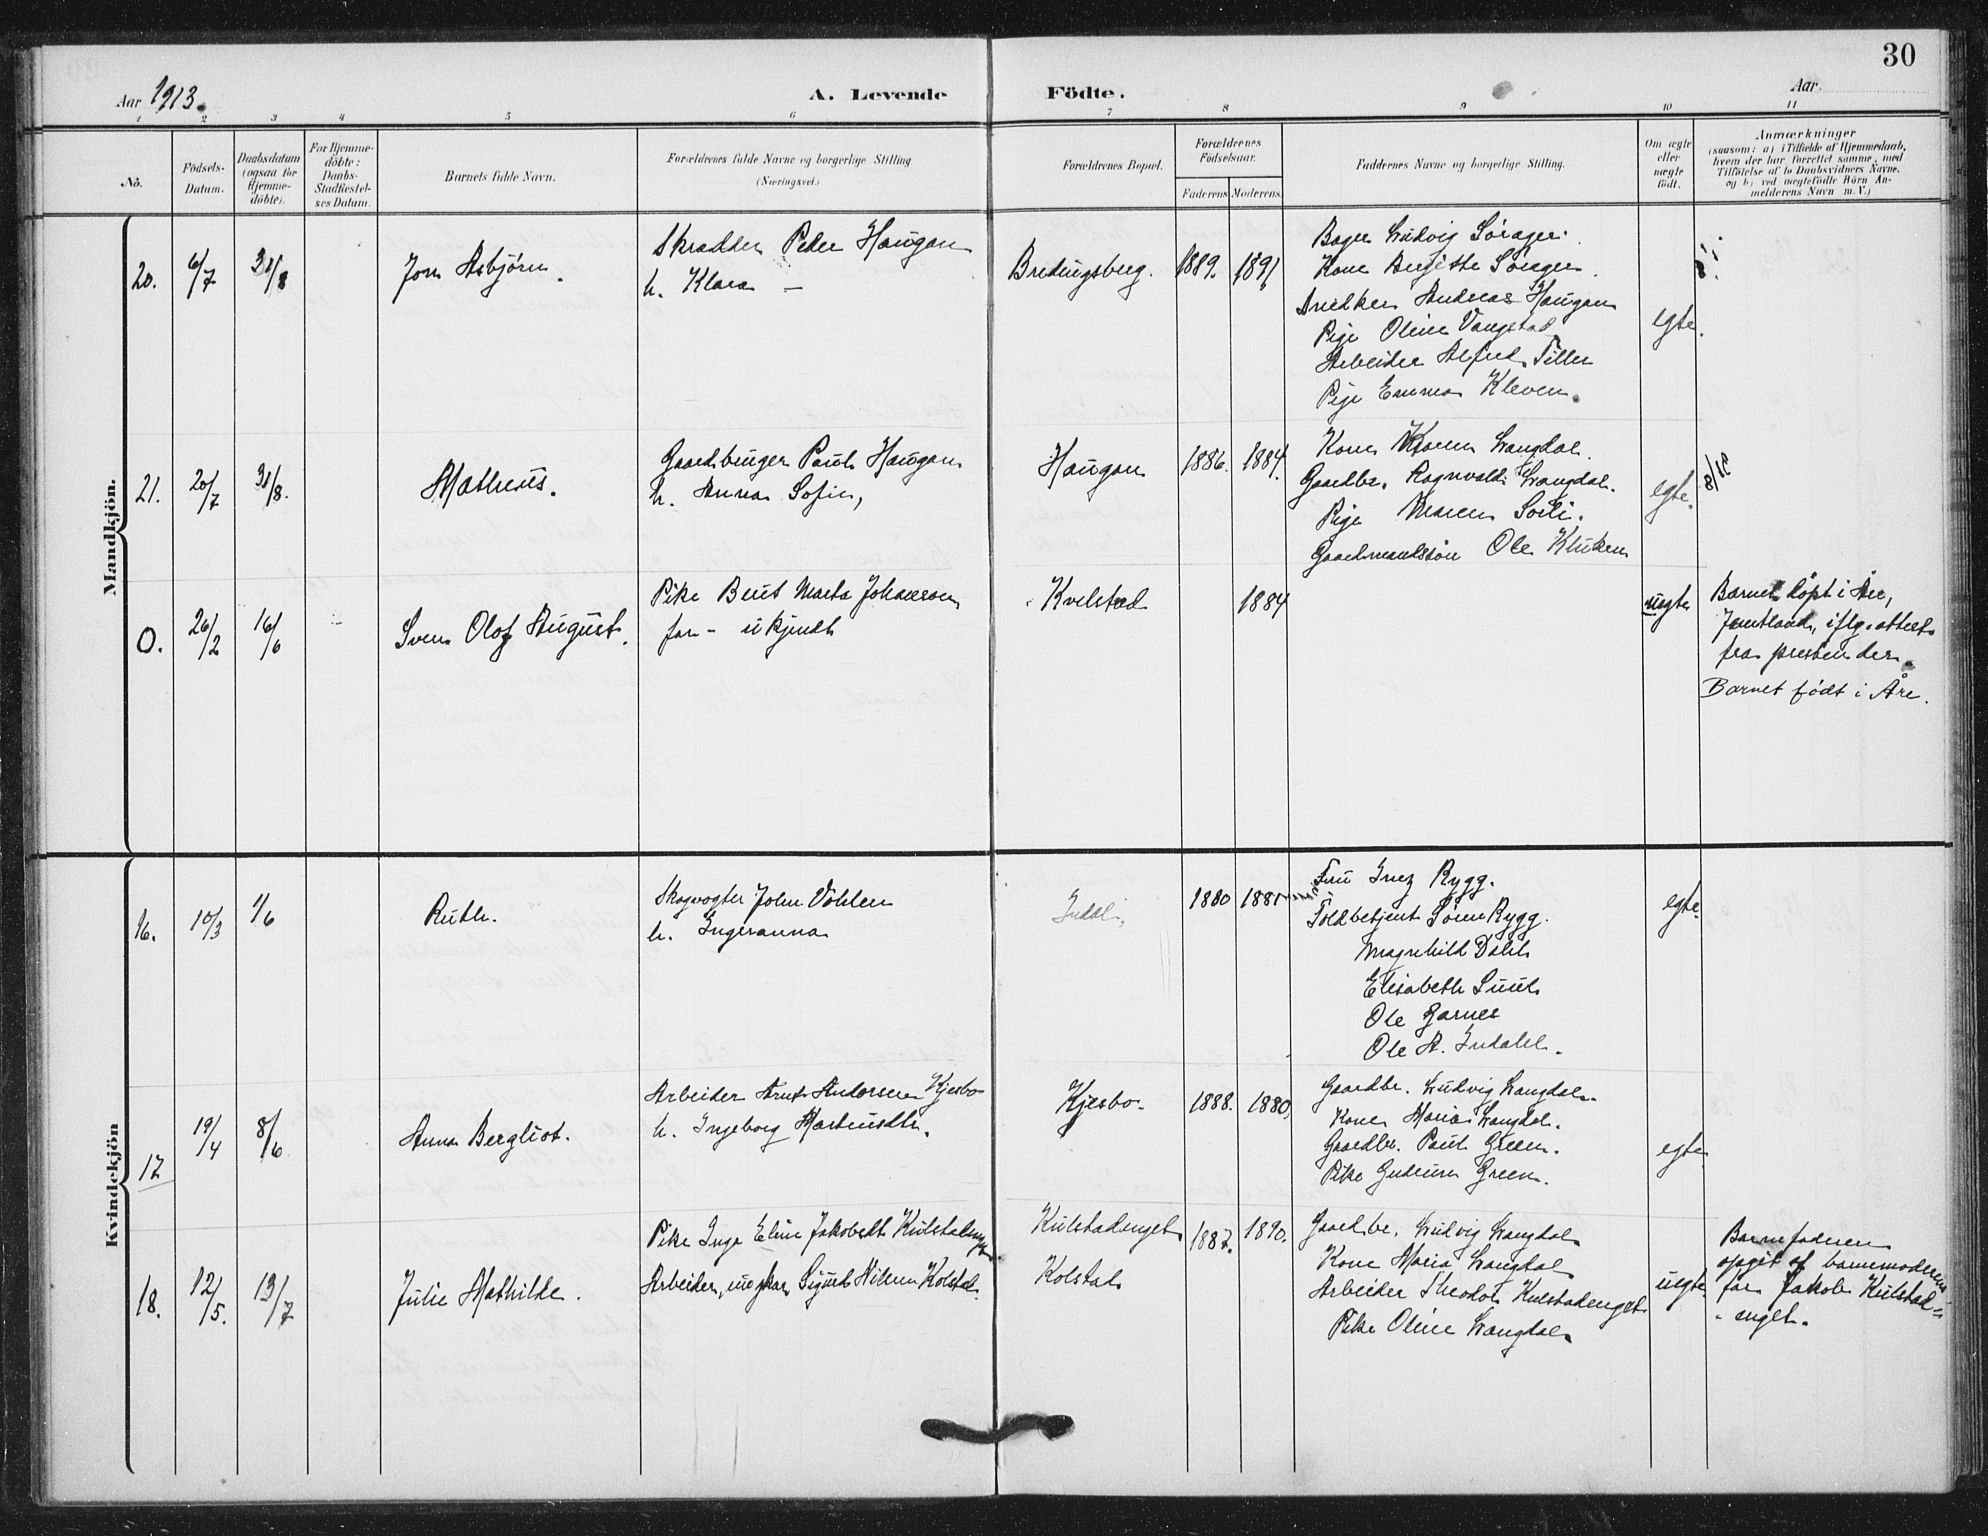 30
Aar 1913.
A. Levende Födte.
Aar
1 2 3 4 5 6 7 8 9 10 11
No.
Födsels-
Datum.
Daabsdatum
(ogsaa for
Hjemme-
döbte).
For Hjemme-
döbte:
Daabs-
Stadfæstel-
ses Datum.
Barnets fulde Navn.
Forældrenes fulde Navne og borgerlige Stilling
(Næringsvei.)
Forældrenes Bopæl.
Forældrenes
Födselsaar.
Faderens Moderens
Faddernes Navne og borgerlige Stilling.
Om ægte
eller
uægte
födt.
Anmærkninger
(saasom: a) i Tilfælde af Hjemmedaab,
hvem der har forrettet samme, med
Tilföielse af to Daabsvidners Navne.
og b) ved uægtefödte Börn An-
melderens Navn m. V.)
Mandkjön.
20. 6/7 31/8 Jon Asbjörn.
Skrædder Peder Haugan
h. Klara —
Bredingsberg. 1889. 1891
Bager Ludvig Sörager.
Kone Bergitte Sörager.
Snedker Andreas Haugan
Pige Oline Vangstad
Arbeider Alfred Tiller
Pige Emma Kleven.
egte.
21. 20/7 31/8. Matheus.
Gaardbruger Paul Haugan
h. Anna Sofie,
Haugan 1886. 1884.
Kone Karen Langdal.
Gaardbr. Ragnvald Langdal.
Pige Maren Sorli.
Gaardmandssön Ole Kluken
egte.
O. 26/2 16/6 Sven Olof August.
Pike Brut Marta Johanson
far - ukjendt
Kvelstad 1884
uegte
Barnet döpt i Åre,
Jemtland, iflg. attest
fra presten der.
Barnet födt i Åre.
Kvindekjön
16. 10/3 1/6 Ruth.
Skogvogter John Vohlen
h. Ingeranna
Indal, 1880 1881
Fru Inez Rygg.
Toldbetjent Sören Rygg.
Magnhild Dahl
Elisabeth Suul
Ole Garnes
Ole A. Indahl.
egte.
17 19/4 8/6 Anna Bergliot.
Arbeider Arnt Andersen Kjesbo
h. Ingeborg Martinusdtr.
Kjesbo. 1888. 1880,
Gaardbr. Ludvig Langdal.
Kone Maria Langdal.
Gaardbr. Paul Green.
Pike Gudrun Green.
egte
18. 12/5. 13/7 Julie Mathilde.
Pike Inga Eline Jakobsdt Kulstadenget
Arbeider, ungkar, Sigurd Nilsen Kolstad.
Kulstadenget
Kolstad
1887. 1890.
Gaardbr. Ludvig Langdal
Kone Maria Langdal
Arbeider Theodor Kulstadenget
Pike Oline Langdal
uegte
Barnefaderen
opgit af barnemoderens
far Jakob Kulstad-
enget.